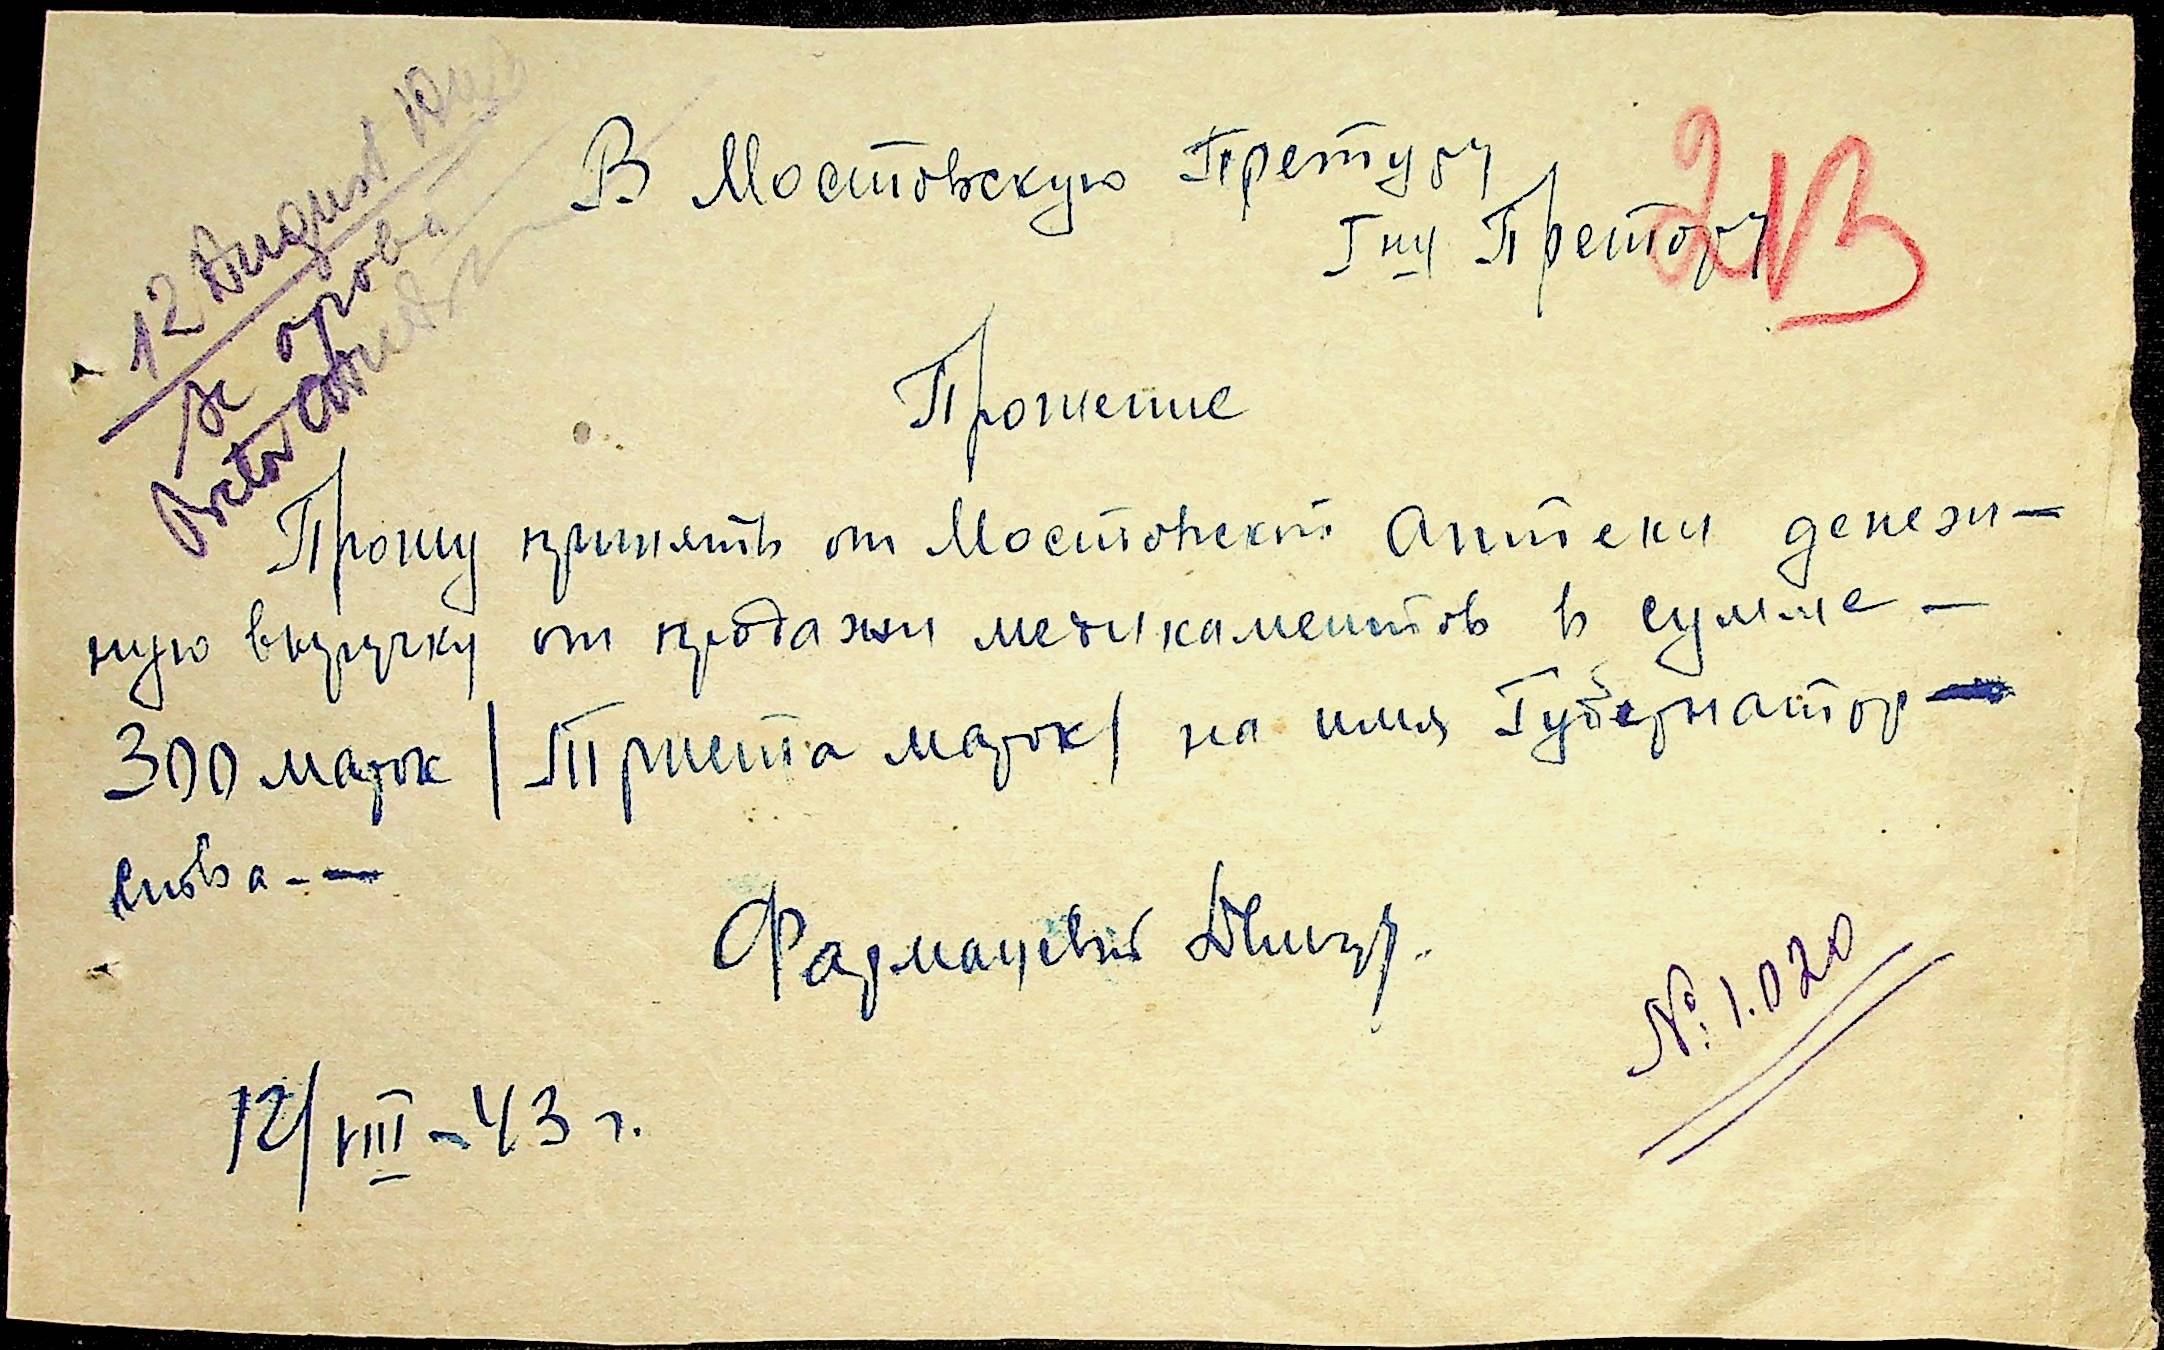 12 August 1943
Se aprobă
В Мостовскую Претуру
Гну Претору
Прошение
Прошу принять от Мостовской Аптеки денеж-
ную выручку от продажи медикаментов в сумме -
300 марок / Триста марок / на имя Губернатор-
ства - -
Фармацевт
12/VIII - 43 г.
№ 1.020